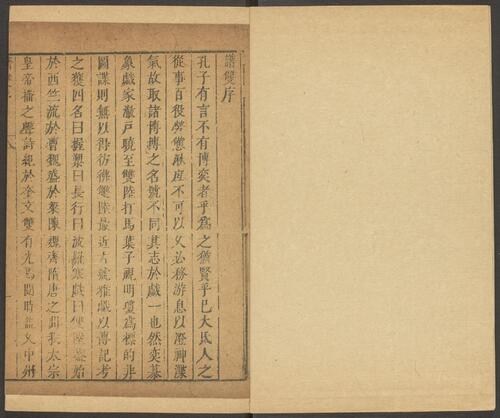 譜雙序
孔子有言不有博奕者乎爲之猶賢乎已大氐人之
從事百役勞憊疲不可以久必務游息以澄神渫
氣故取諸博塞之名號不同其志於戲一也然奕棊
象戲家澈戶曉至雙陸打馬葉子視明瓊爲標的非
圖諜則無以得彷彿雙陸最近古號雅戲以傳記考
之獲四名曰握槊曰長行曰波羅塞戲曰雙陸蓋始
於西竺流於曹魏盛於梁陳魏齊隋唐之間我太宗
皇帝播之聲詩紀於奎文雙有光焉閒時益久中州